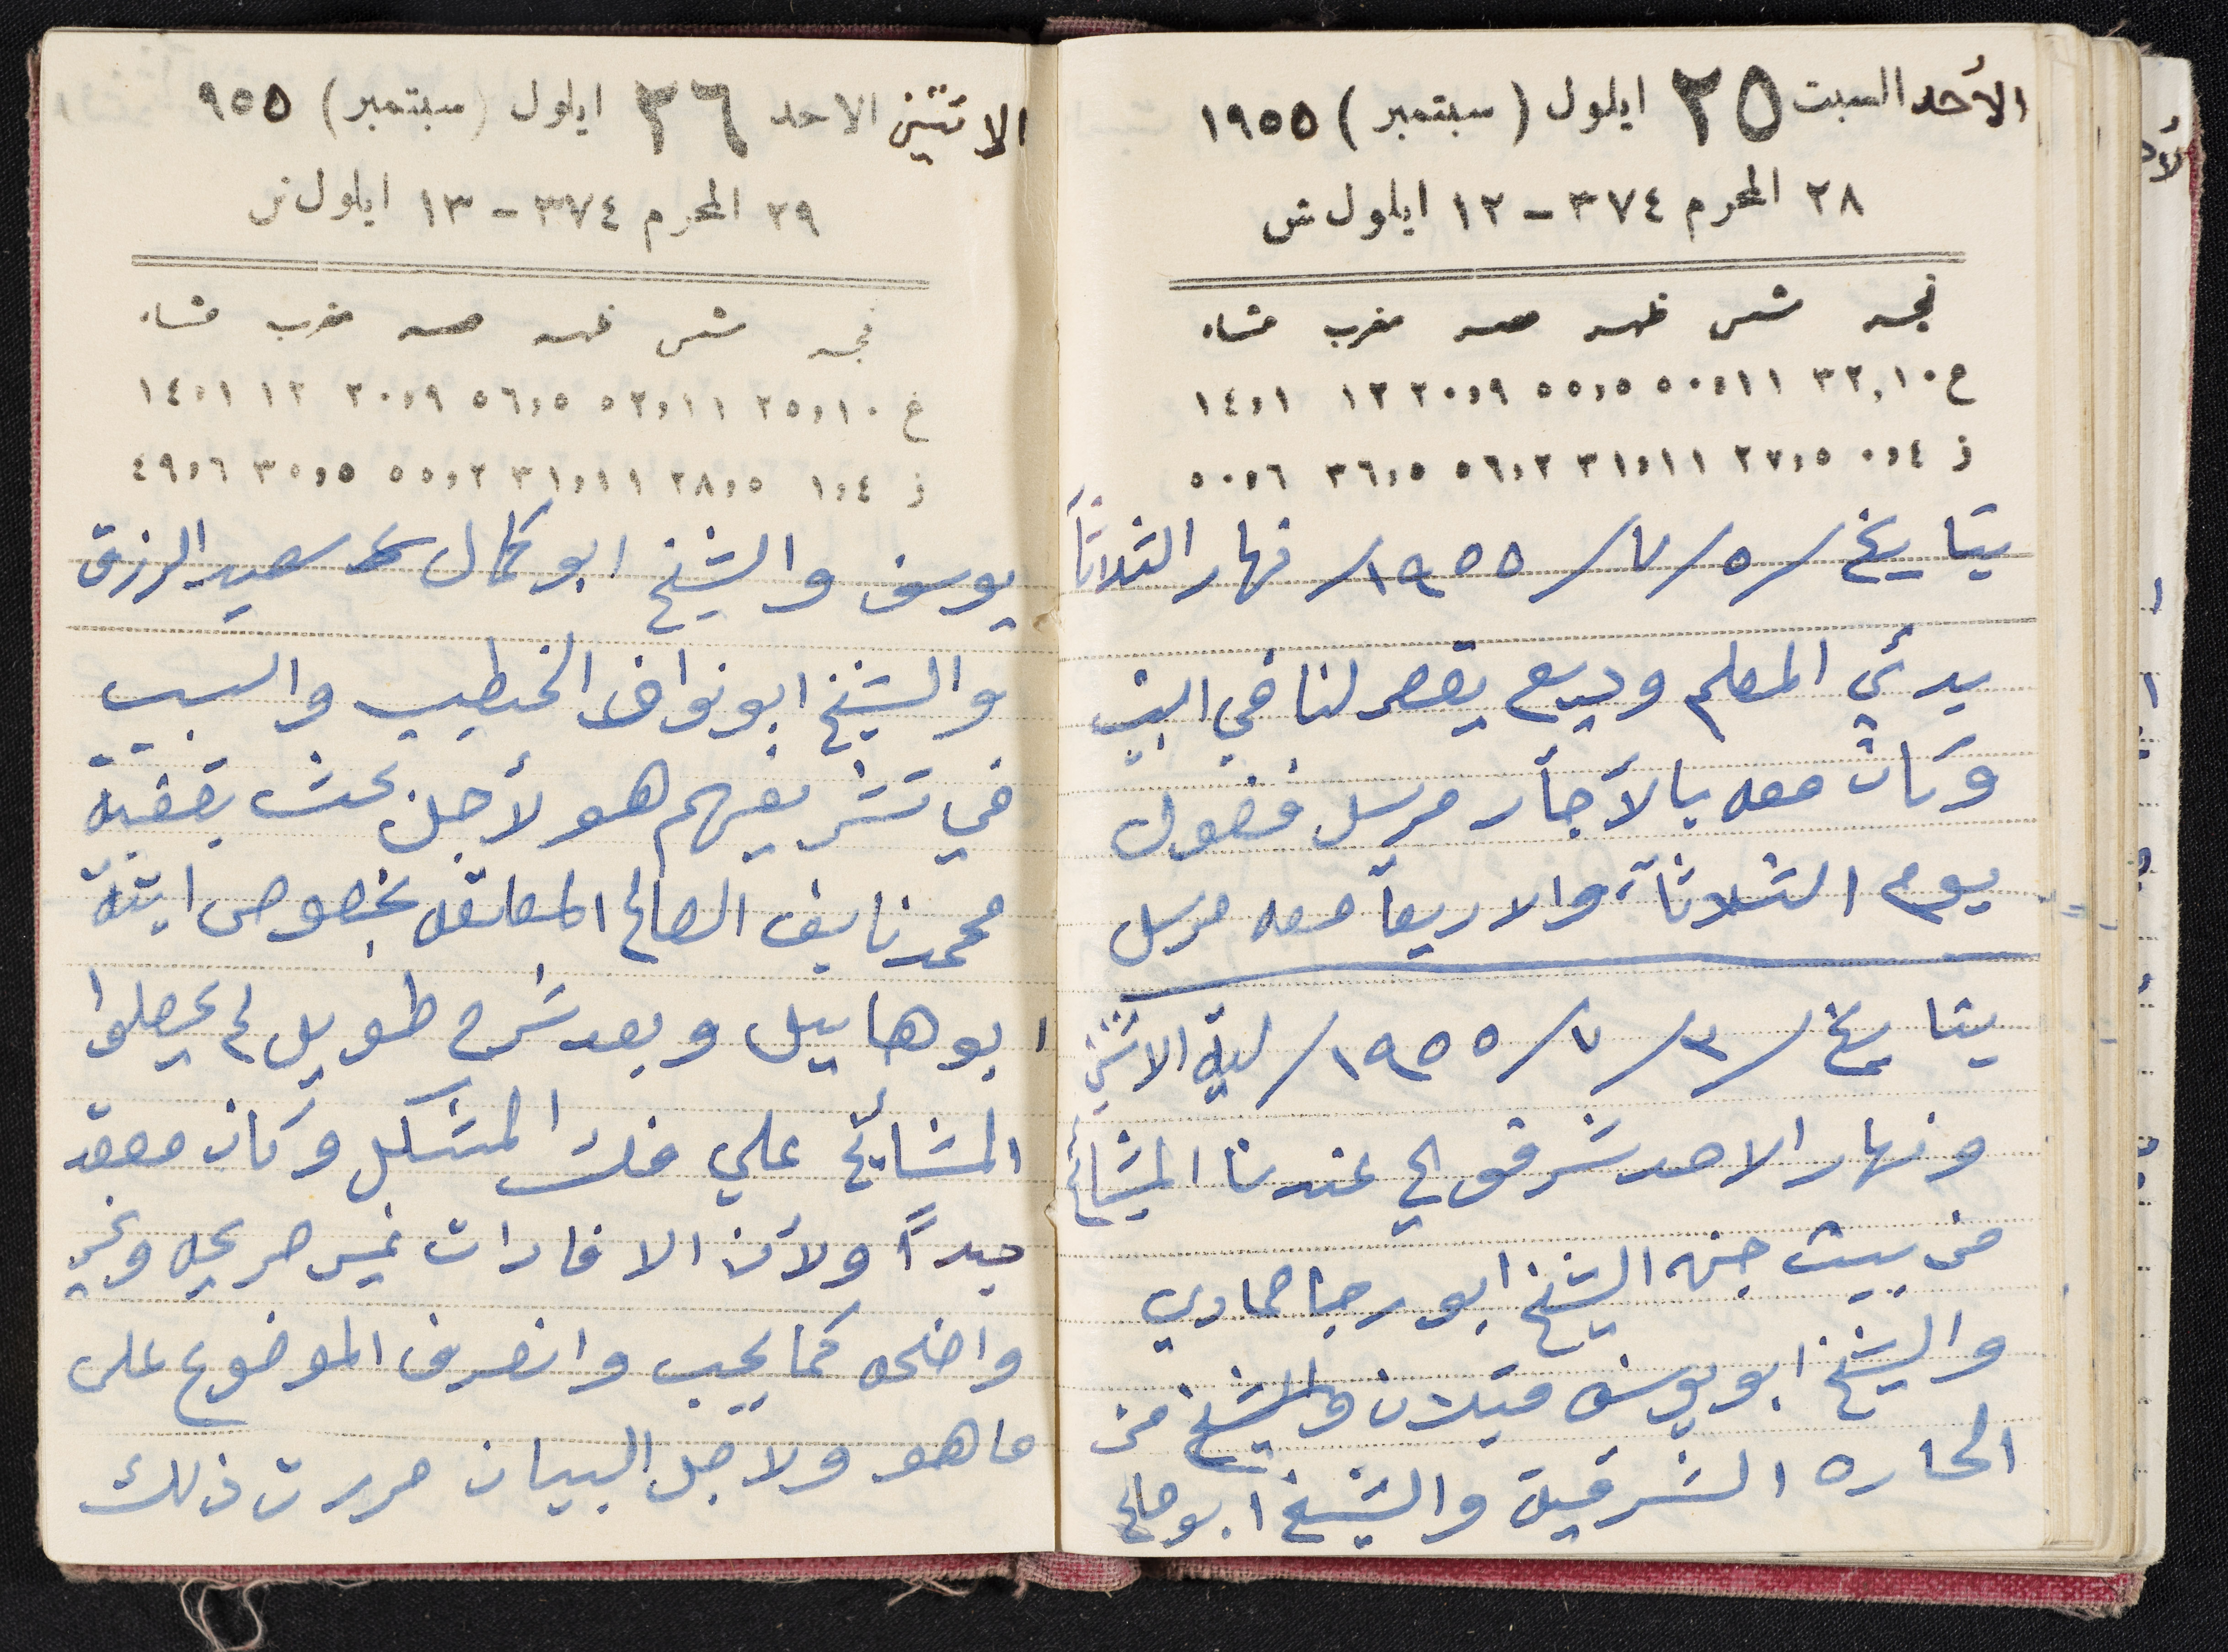 الأحد السبت ٢٥ ايلول (سبتمبر) ١٩٥٥
٢٨ المحرم ٣٧٤ - ١٢ ايلول ش
فجر شمس ظهر عصر مغرب عشاء
ع ٣٢,١٠ ٥٠,١١ ٥٥,٥ ٢٠,٩ ١٢ ١٤,١
ز ٠,٤ ٢٧,٥ ٣١,١١ ٥٦,٢ ٣٦,٥ ٥٠,٦
بتاريخ /٥/٧/١٩٥٥/ نهار الثلاثا
بدئي المعلم وديع يقصر لنا في البيت
وكان معه بالأجار مرسل فضول
يوم الثلاثاء والاربعا معه مرسل
بتاريخ /٣/٧/١٩٥٥/ ليلة الاثنين
ونهار الاحد شرفو الي عندنا المشائخ
من بيت جن الشيخ ابو رجا حمادي
والشيخ ابو يوسف والشيخ من
الحاره الشرقية والشيخ ابو صالح
الاثنين الاحد ٢٦ ايلول (سبتمبر) ٩٥٥
٢٩ المحرم ٣٧٤ - ١٣ ايلول ش
فجر شمس ظهر عصر مغرب عشاء
ع ٢٥,١٠ ٥٢,١١ ٥٦,٥ ٢٠,٩ ١٢ ١٤,١
ز ١,٤ ٢٨,٥ ٣١,١١ ٥٥,٢ ٣٥,٥ ٤٩,٦
يوسف والشيخ ابو كمال سعيد الرزق
والشيخ ابو نواف الخطيب والسبب
في تشريفهم هو لأجل بحث بقضية
محمد نايف الصالح المعلقه بخصوص ابنة
ابو هاييل وبعد شرح طويل لم يحصلوا
المشائخ علي فك المشكل وكان معقد
جيداً ولأن الافادات غير صريحه وغير
واضحه كما يجب وانصرف الموضوع على
ما هو ولاجل البيان حررت ذلك